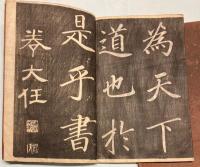 為天下
道也於
是乎書
春大任